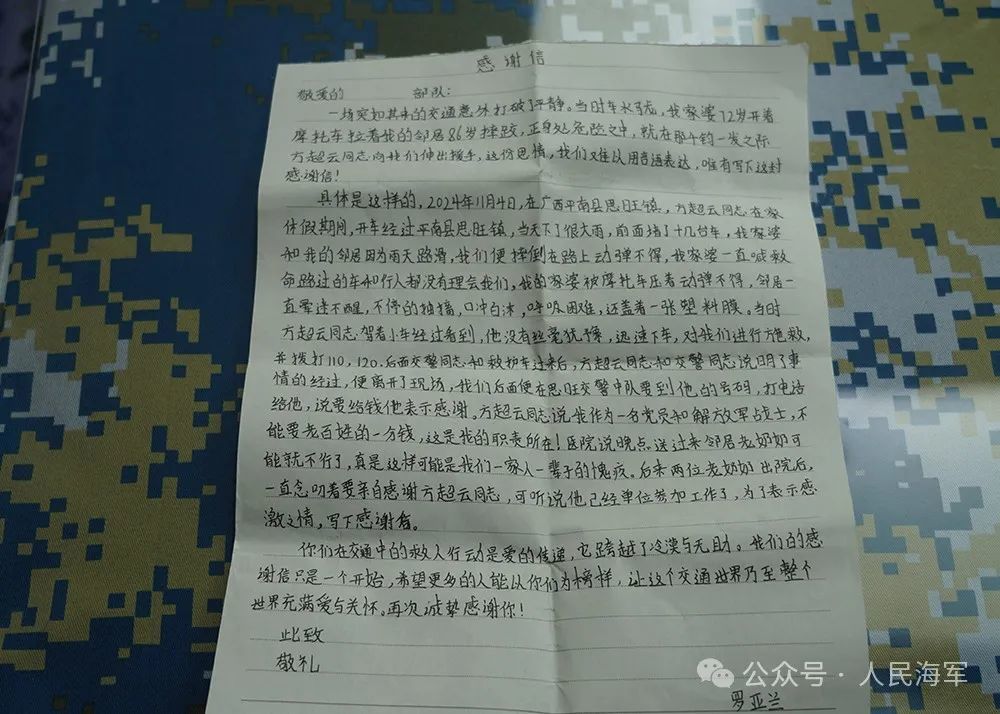 感谢信
敬爱的 部队：
一场突如其来的交通意外打破了平静。当时车水 ，我家婆72岁开着
摩托车拉着我的邻居86岁摔跤，正身处危险之中，就在那千钧一发之际
方超云同志向我们伸出援手，这份恩情，我们难以用言语表达，唯有写下这封
感谢信！
具体是这样的，2024年11月4日，在广西平南县思旺镇，方超云同志在家
休假期间，开车经过平南县思旺镇，当天下了很大雨，前面堵了十几台车，我家婆
和我的邻居因为雨天路滑，我们便摔倒在路上动弹不得，我家婆一直喊救
命路过的车和行人都没有理会我们，我的家婆被摩托车压着动弹不得，邻居一
直晕迷不醒，不停的抽搐，口冲白沫，呼吸困难，还盖着一张塑料膜。当时
方超云同志驾着小车经过看到，他没有丝毫犹豫，迅速下车，对我们进行施救，
并拨打110，120。后面交警同志和救护车过来后，方超云同志和交警同志说明了事
情的经过，便离开了现场，我们后面便在思旺交警中队要到他的号码，打电话
给他，说要给钱他表示感谢。方超云同志说我作为一名党员和解放军战士，不
能要老百姓的一分钱，这是我的职责所在！医院说晚点送过来邻居老奶奶可
能就不行了，真是这样可能是我们一家人一辈子的愧疚。后来两位老奶奶出院后，
一直念叨着要亲自感谢方超云同志，可听说他已经单位参加工作了，为了表示感
激之情，写下感谢信。
你们在交通中的救人行动是爱的传递，它跨越了冷漠与无助。我们的感
谢信只是一个开始，希望更多的人能从你们为榜样，让这个交通世界乃至整个
世界充满爱与关怀。再次诚挚感谢你！
此致
敬礼
罗亚兰
公众号·人民海军